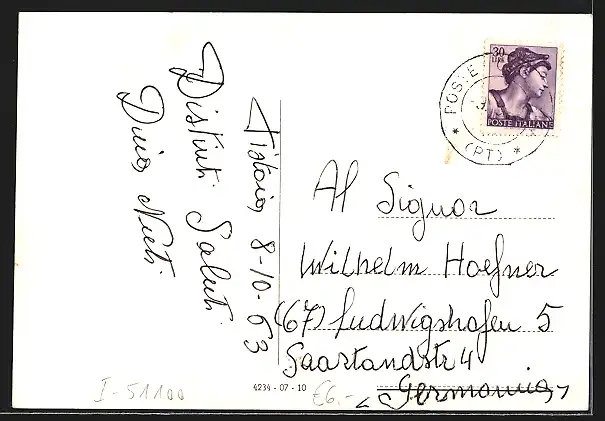 Pistoia, 8-10-63
Distinti Saluti
Dino Nieti
Al Signor
Wilhelm Hoefner
(67) Ludwigshafen 5
Saarlandstr 4
Germania
30
LIRE
POSTE ITALIANE
POSTE
* (PT) *
4234 - 07 - 10
I-51100
€6.-